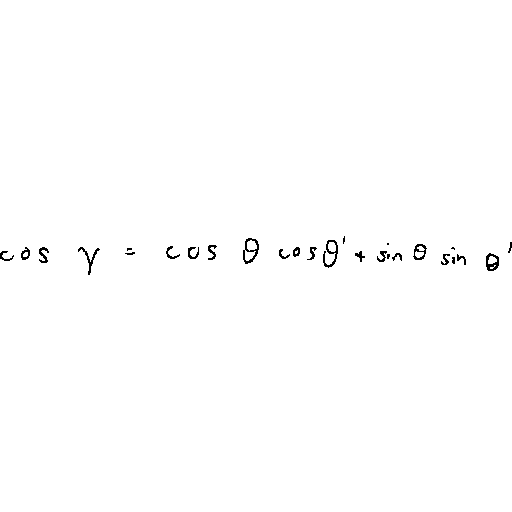 cos γ = cos θ cos θ' + sin θ sin θ'